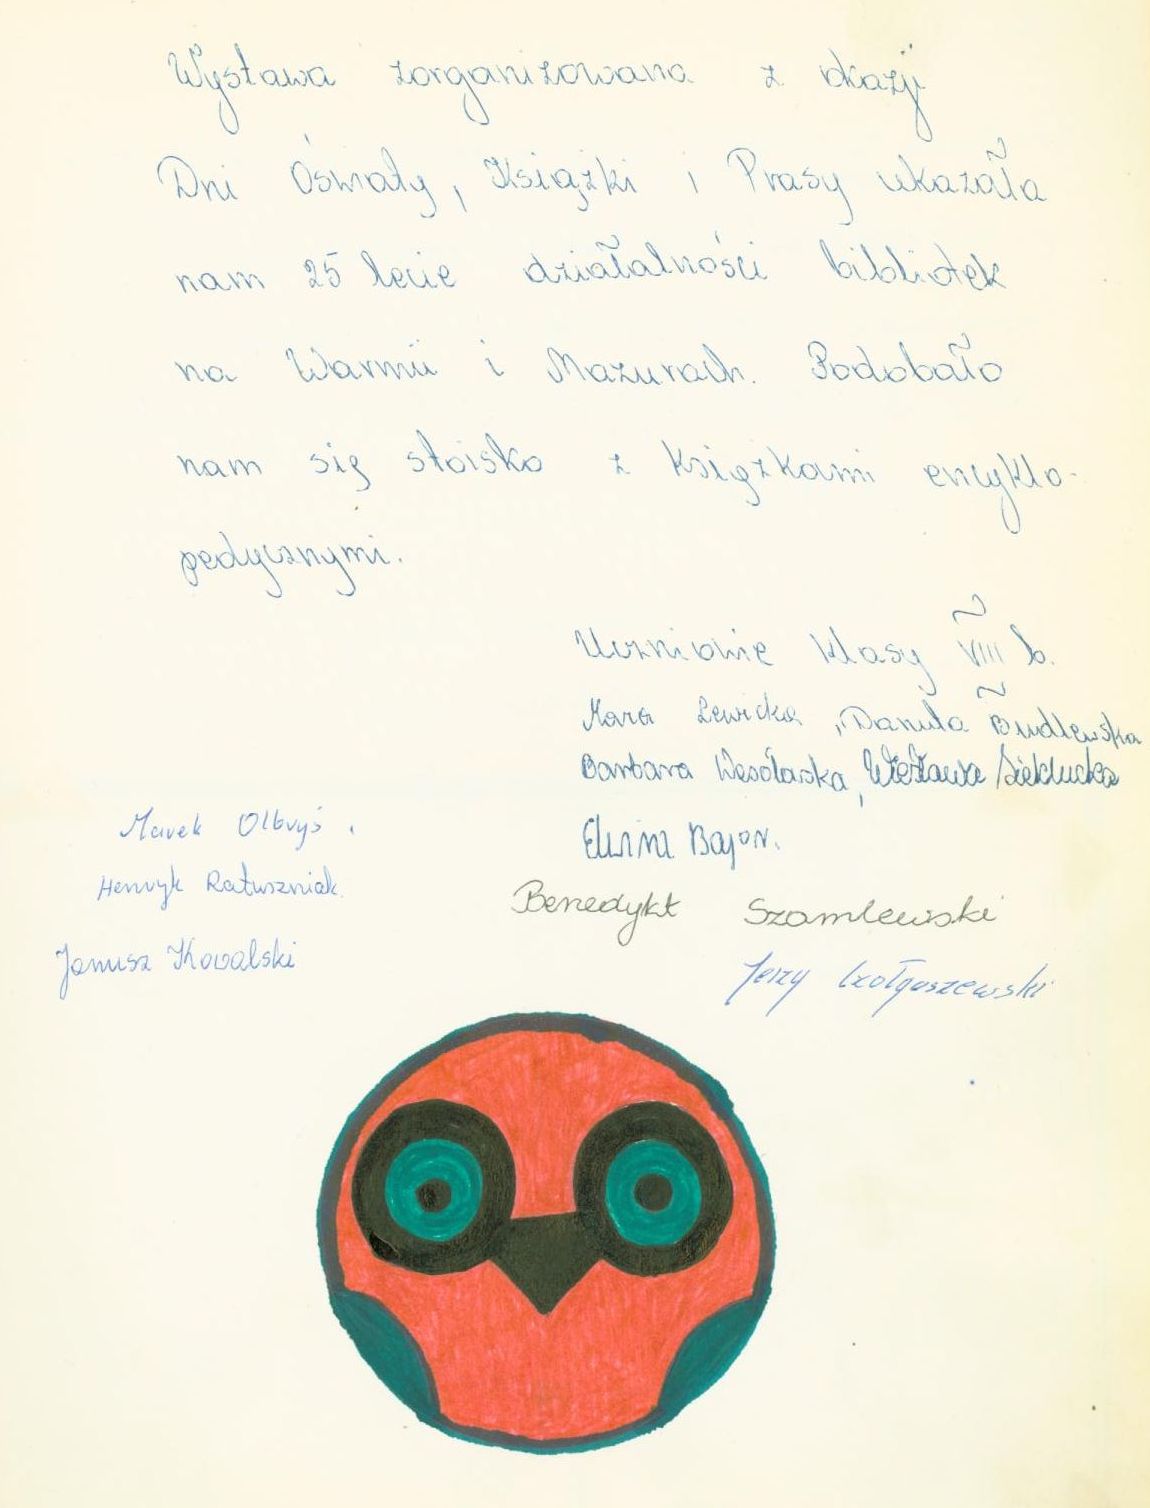 Wystawa zorganizowana z okazji
Dni Oświaty, Książki i Prasy ukazała
nam 25 lecie działalności bibliotek
na Warmii i Mazurach. Podobało
nam się stoisko z książkami encyklo-
pedycznymi.
Uczniowie klasy VIII b.
Lewicka, Danuta Budlewska
Barbara Wesołowska, Wiesława Siekłucka
Bajor.
Marek Olbryś.
Henryk Ratuszniak.
Benedykt Szamlewski
Janusz Kowalski
Jerzy